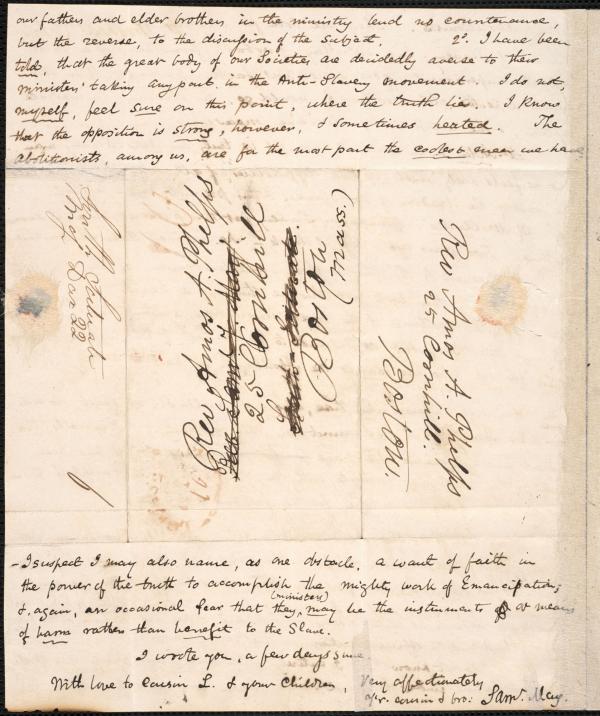 our fathers and elder brothers in the ministry lend no countenance,
but the reverse, to the discussion of the subject. 2º. I have been
told, that the great body of our Societies are decidedly averse to their
ministers' taking any part in the Anti-Slavery movement. I do not,
myself, feel sure on this point, where the truth lies. I know
that the opposition is strong, however, & sometimes heated. The
abolitionists, among us, are for the most part the coolest men we have
So. Scituate
Dec 22
Rev Amos A. Phelps
25 Cornhill
Boston
(Mass.)
Rev Amos A. Phelps
25 Cornhill.
Boston.
6
- I suspect I may also name, as one obstacle, a want of faith in
the power of the truth to accomplish the mighty work of Emancipation;
(ministers)
&, again, an occasional fear that they, may be the instruments or means
of harm rather than benefit to the Slave.
I wrote you, a few days since.
With love to cousin L. & your children, Very affectionately
yr. cousin & bro: Saml. May.